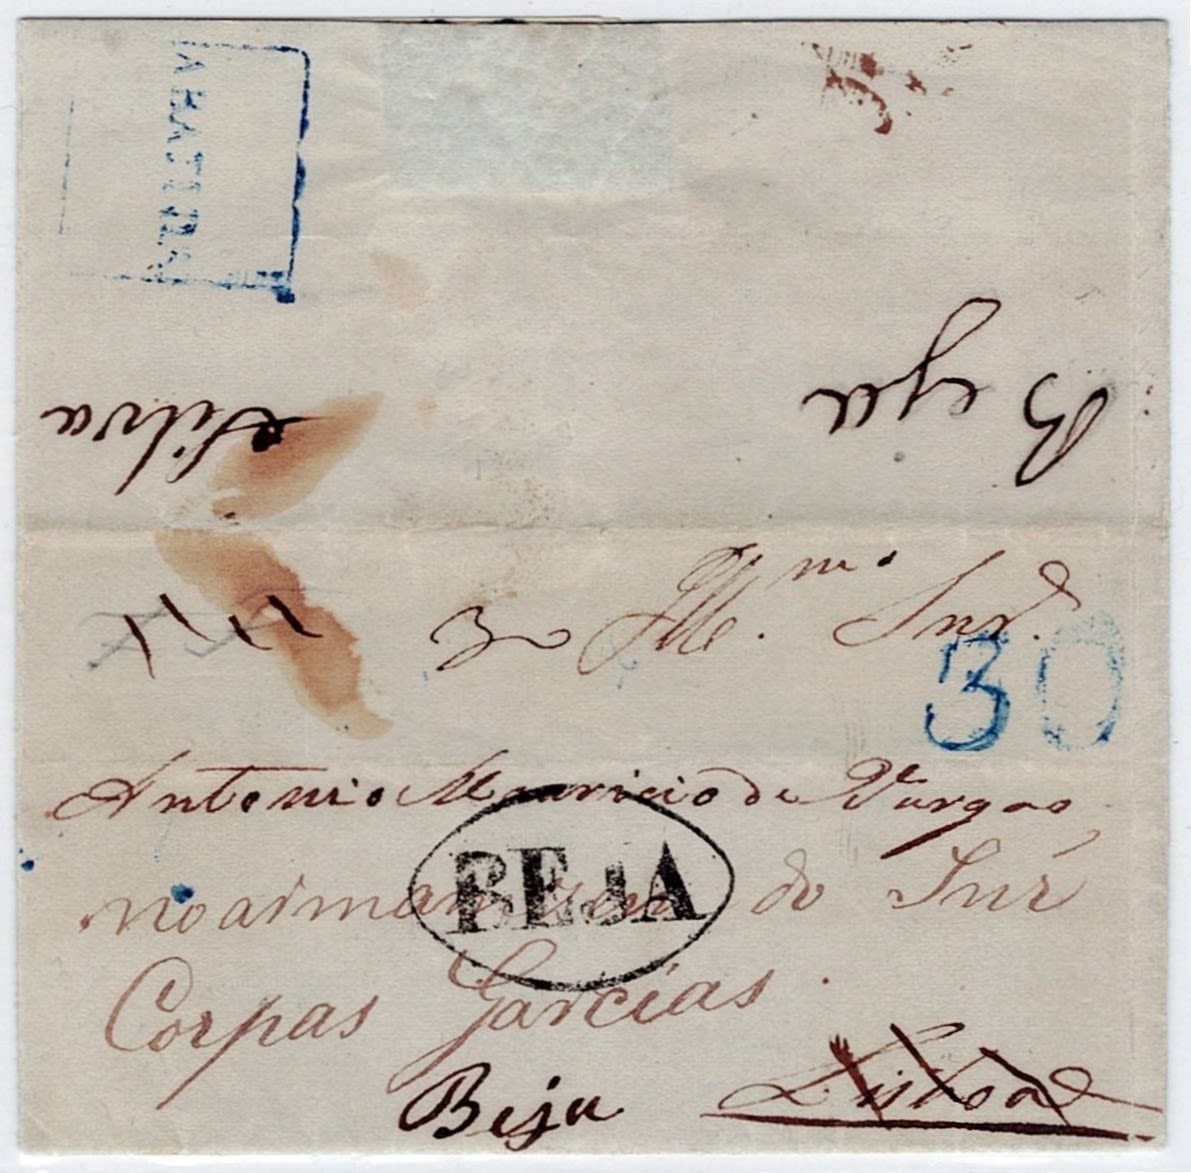 Silva Beja
Ill.mo Snr.
30
Antonio Mauricio de Vargas
BEJA
no armazem do Snr
Corpas Garcias
Beja Lisboa